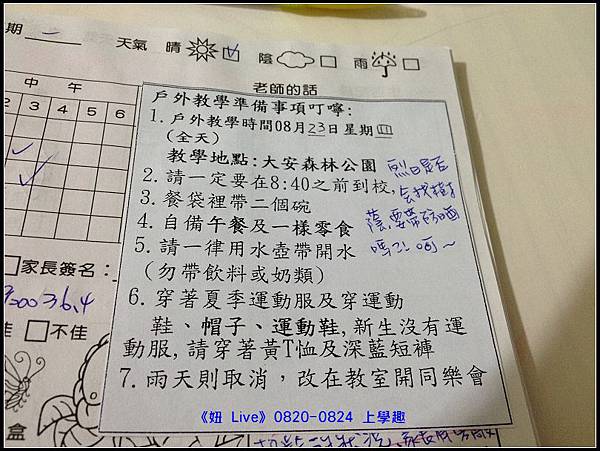 期 一
天氣 晴 陰 雨
老師的話
中 午
2 3 4 5 6
戶外教學準備事項叮嚀:
1. 戶外教學時間08月23日星期四
(全天)
教學地點:大安森林公園
2. 請一定要在8:40之前到校,
3. 餐袋裡帶二個碗
4. 自備午餐及一樣零食
5. 請一律用水壺帶開水
(勿帶飲料或奶類)
6. 穿著夏季運動服及穿運動
鞋、帽子、運動鞋,新生沒有運
動服,請穿著黃T恤及深藍短褲
7. 雨天則取消,改在教室開同樂會
烈日是否
會找樹
蔭,要帶防曬
嗎?
家長簽名:
36.4
佳 不佳
盒
《妞 Live》0820-0824 上學趣